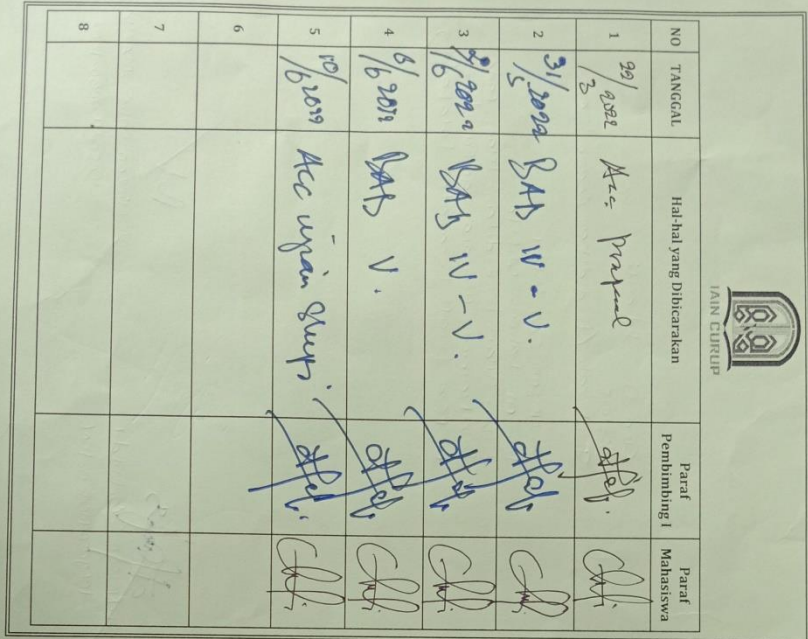 IAIN CURUP
NO TANGGAL Hal-hal yang Dibicarakan Paraf Pembimbing I Paraf Mahasiswa
1 22/3 2022 Acc proposal
2 31/5 2022 BAB IV - V.
3 2/6 2022 BAB IV - V.
4 6/6 2022 BAB V.
5 10/6 2022 Acc ujian Skripsi
6
7
8